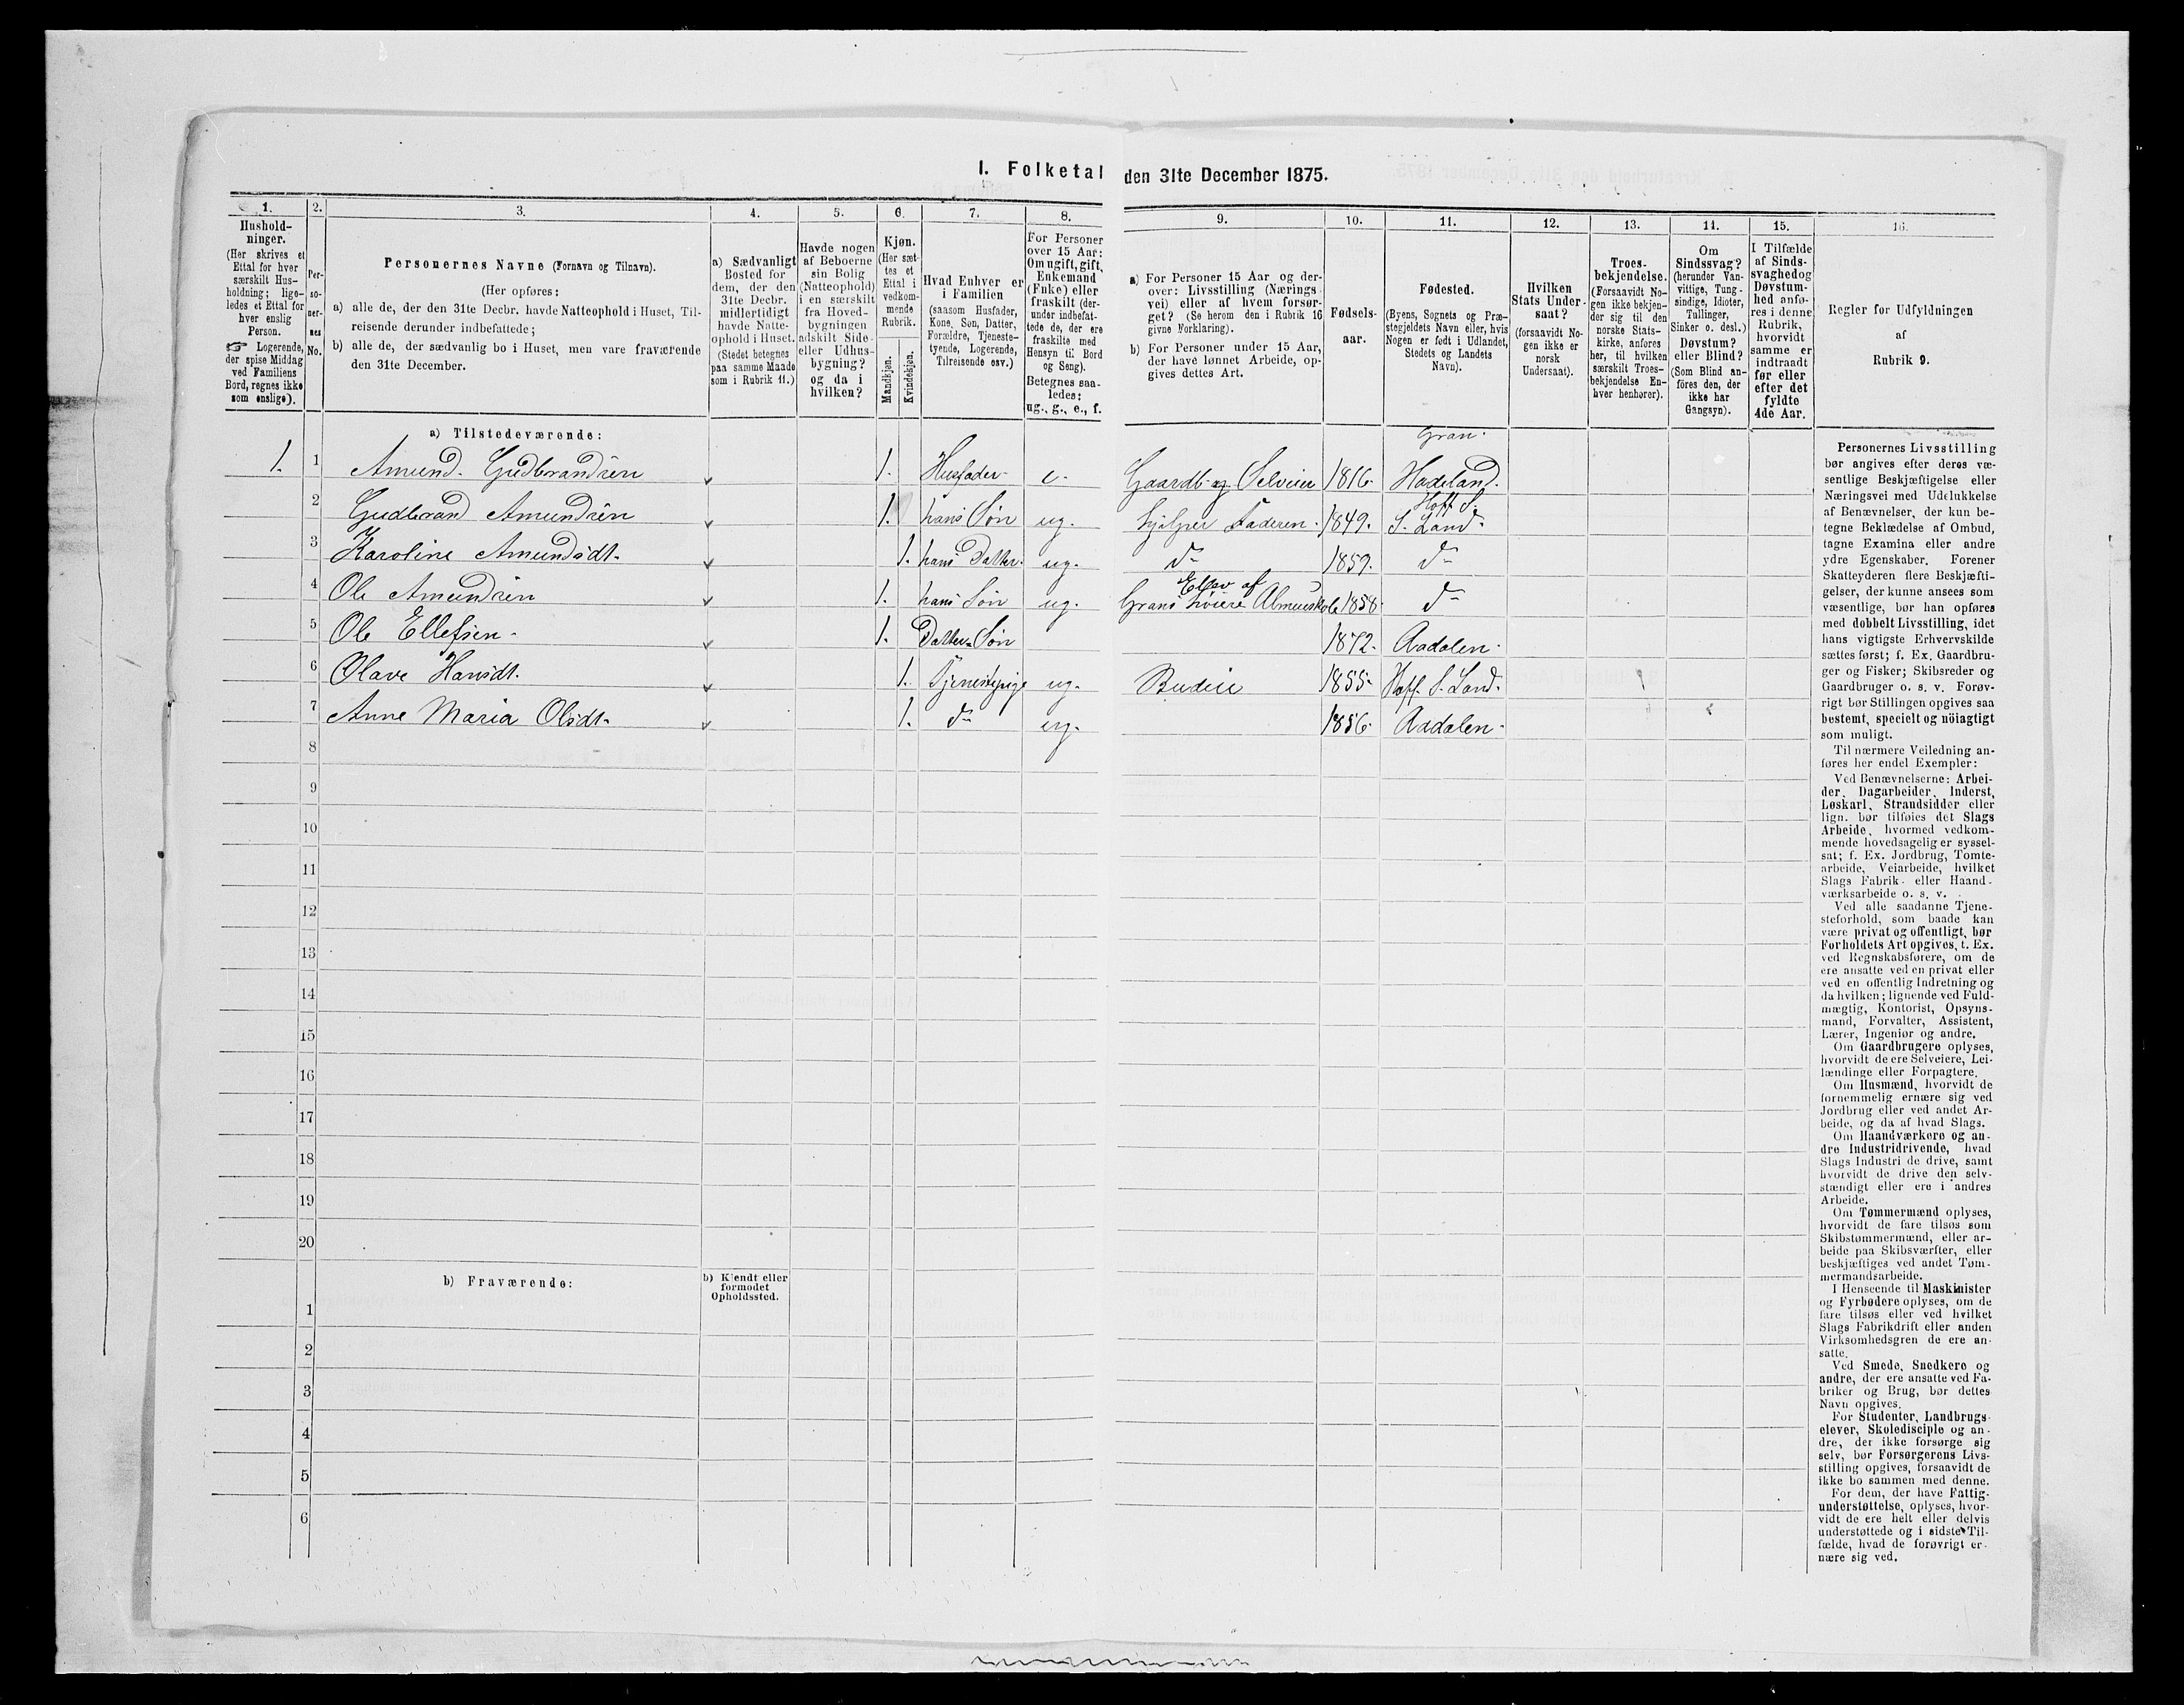 I. Folketal den 31te December 1875.
1. 2. 3. 4. 5. 6. 7. 8. 9. 10. 11. 12. 13. 14. 15. 16.
Hushold-
ninger.
(Her skrives et
Ettal for hver
særskilt Hus-
holdning; lige-
ledes et Ettal for
hver enslig
Person.
☞ Logerende,
der spise Middag
ved Familiens
Bord, regnes ikke
som enslige).
Per-
so-
ner-
nes
No.
Personernes Navne (Fornavn og Tilnavn).
(Her opføres:
a) alle de, der den 31te Decbr. havde Natteophold i Huset, Til-
reisende derunder indbefattede;
b) alle de, der sædvanlig bo i Huset, men vare fraværende
den 31te December.
a) Sædvanligt
Bosted for
dem, der den
31te Decbr.
midlertidigt
havde Natte-
ophold i Huset.
(Stedet betegnes
paa samme Maade
som i Rubrik 11.)
Havde nogen
af Beboerne
sin Bolig
(Natteophold)
i en særskilt
fra Hoved-
bygningen
adskilt Side-
eller Udhus-
bygning?
og da i
hvilken?
Kjøn.
(Her sæt-
tes et
Ettal i
vedkom-
mende
Rubrik.
Mandkjøn.
Kvindekjøn.
Hvad Enhver er
i Familien
(saasom Husfader,
Kone, Søn, Datter,
Forældre, Tjeneste-
tyende, Logerende,
Tilreisende osv.)
For Personer
over 15 Aar:
Om ugift, gift,
Enkemand
(Enke) eller
fraskilt (der-
under indbefat-
tede de, der ere
fraskilte med
Hensyn til Bord
og Seng).
Betegnes saa-
ledes:
ug., g., e., f.
a) For Personer 15 Aar og der-
over: Livsstilling (Nærings-
vei) eller af hvem forsør-
get? (Se herom den i Rubrik 16
givne Forklaring).
b) For Personer under 15 Aar,
der have lønnet Arbeide, op-
gives dettes Art.
Fødsels-
aar.
Fødested.
(Byens, Sognets og Præ-
stegjeldets Navn eller, hvis
Nogen er født i Udlandet,
Stedets og Landets
Navn).
Hvilken
Stats Under-
saat?
(forsaavidt No-
gen ikke er
norsk
Undersaat).
Troes-
bekjendelse.
(Forsaavidt No-
gen ikke bekjen-
der sig til den
norske Stats-
kirke, anføres
her, til hvilken
særskilt Troes-
bekjendelse En-
hver henhører).
Om
Sindssvag?
(herunder Van-
vittige, Tung-
sindige, Idioter,
Tullinger,
Sinker o. desl.)
Døvstum?
eller Blind?
(Som Blind an-
föres den, der
ikke har
Gangsyn).
I Tilfælde
af Sinds-
svaghed og
Døvstum-
hed anfø-
res i denne
Rubrik,
hvorvidt
samme er
indtraadt
før eller
efter det
fyldte
4de Aar.
Regler for Udfyldningen
af
Rubrik 9.
a) Tilstedeværende:
Gran.
1. 1 Amund. Gudbrandsen 1. Husfader e. Gaardb. og Selveier 1816. Hadeland.
Hoff S.
2 Gudbrand Amundsen 1. hans Søn ug. hjelper Faderen. 1849. S. Land.
3 Karoline Amundsdt. 1. hans Datter. ug. do 1859. do
Elev af
4 Ole Amundsen 1. hans Søn ug. Grans høiere Almueskole 1858. do
5 Ole Ellefsen. 1. Datter Søn 1872. Aadalen.
6 Olave Hansdt. 1. Tjenestepige ug. Budeie 1855. Hoff. S. Land.
7 Anne Maria Olsdt. 1. do ug. 1856. Aadalen.
8
9
10
11
12
13
14
15
16
17
18
19
20
b) Fraværende:
b) Kjendt eller
formodet
Opholdssted.
1
2
3
4
5
6
Personernes Livsstilling
bør angives efter deres væ-
sentlige Beskjæftigelse eller
Næringsvei med Udelukkelse
af Benævnelser, der kun be-
tegne Beklædelse af Ombud,
tagne Examina eller andre
ydre Egenskaber. Forener
Skatteyderen flere Beskjæfti-
gelser, der kunne ansees som
væsentlige, bør han opføres
med dobbelt Livsstilling, idet
hans vigtigste Erhvervskilde
sættes først; f. Ex. Gaardbru-
ger og Fisker; Skibsreder og
Gaardbruger o. s. v. Forøv-
rigt bør Stillingen opgives saa
bestemt, specielt og nöiagtigt
som muligt.
Til nærmere Veiledning an-
føres her endel Exempler:
Ved Benævnelserne: Arbei-
der, Dagarbeider, Inderst,
Løskarl, Strandsidder eller
lign. bør tilføies det Slags
Arbeide, hvormed vedkom-
mende hovedsagelig er syssel-
sat; f. Ex. Jordbrug, Tomte-
arbeide, Veiarbeide, hvilket
Slags Fabrik- eller Haand-
værksarbeide o. s. v.
Ved alle saadanne Tjene-
steforhold, som baade kan
være privat og offentligt, bør
Forholdets Art opgives, t. Ex.
ved Regnskabsførere, om de
ere ansatte ved en privat eller
ved en offentlig Indretning og
da hvilken; lignende ved Fuld-
mægtig, Kontorist, Opsyns-
mand, Forvalter, Assistent,
Lærer, Ingeniør og andre.
Om Gaardbrugere oplyses,
hvorvidt de ere Selveiere, Lei-
lændinge eller Forpagtere.
Om Husmænd, hvorvidt de
fornemmelig ernære sig ved
Jordbrug eller ved andet Ar-
beide, og da af hvad Slags.
Om Haandværkere og an-
dre Industridrivende, hvad
Slags Industri de drive, samt
hvorvidt de drive den selv-
stændigt eller ere i andres
Arbeide.
Om Tømmermænd oplyses,
hvorvidt de fare tilsøs som
Skibstømmermænd, eller ar-
beide paa Skibsværfter, eller
beskjæftiges ved andet Tøm-
mermandsarbeide.
I Henseende til Maskinister
og Fyrbødere oplyses, om de
fare tilsøs eller ved hvilket
Slags Fabrikdrift eller anden
Virksomhedsgren de ere an-
satte.
Ved Smede, Snedkere og
andre, der ere ansatte ved Fa-
briker og Brug, bør dettes
Navn opgives.
For Studenter, Landbrugs-
elever, Skoledisciple og an-
dre, der ikke forsørge sig
selv, bør Forsørgerens Livs-
stilling opgives, forsaavidt de
ikke bo sammen med denne.
For dem, der have Fattig-
understøttelse, oplyses, hvor-
vidt de ere helt eller delvis
understøttede og i sidste Til-
fælde, hvad de forøvrigt er-
nære sig ved.